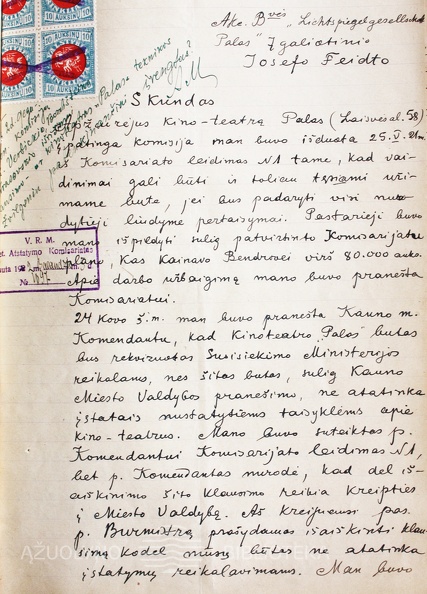 10 AUKSINŲ 10
10 AUKSINŲ 10
Akc. B-vės „Lichtspielgesellschaft
Palas" Įgaliotinio
Josefo Feidto
Skundas
Apžiūrėjus kino-teatrą Palas (Laisvės al. 58)
ypatinga komisija man buvo išduota 25.V.21m.
iš Komisariato leidimas N1 tame, kad vai-
dinimai gali būti ir toliau tęsiami uži-
mame bute, jei bus padaryti visi nuro-
dytieji liudyme pertaisymai. Pastarieji buvo
mano išpildyti sulig patvirtinto Komisarijatu
plano, kas kainavo Bendrovei virš 80.000 auks.
Apie darbo užbaigimą mano buvo pranešta
Komisariatui.
24 Kovo š.m. man buvo pranešta Kauno m.
Komendantu, kad Kinoteatro „Palas" butas
bus rekvizuotas Susisiekimo Ministerijos
reikalams, nes šitas butas, sulig Kauno
Miesto Valdybos pranešimo, ne atatinka
įstatais nustatytiems taisyklėms apie
kino-teatrus. Mano buvo suteiktas p.
Komendantui Komisarijato leidimas N1,
bet p. Komendantas nurodė, kad dėl iš-
aiškinimo šito klausimo reikia kreipties
į Miesto Valdybą. Aš kreipiausi pas
p. Burmistrą prašydamas išaiškinti klau-
simą kodėl mūsų butas ne atatinka
įstatymų reikalavimams. Man buvo
V. R. M.
Atstatymo Komisariatas
No